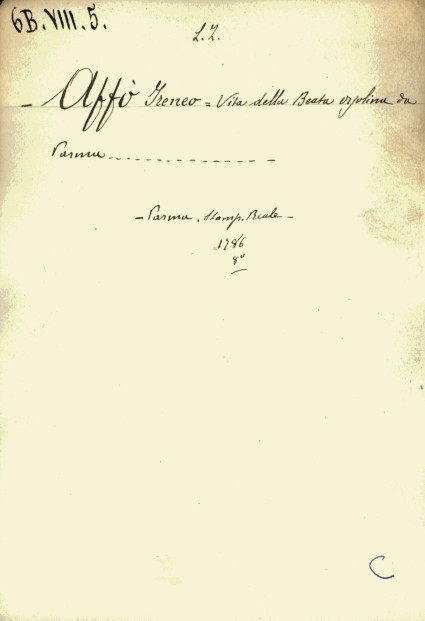 6B.VIII.5.
L.Z.
- Affò Ireneo = Vita della Beata Orsolina da
Parma - - - - - - - - - - - - - -
- Parma. Stamp. Reale -
1786
8º
C